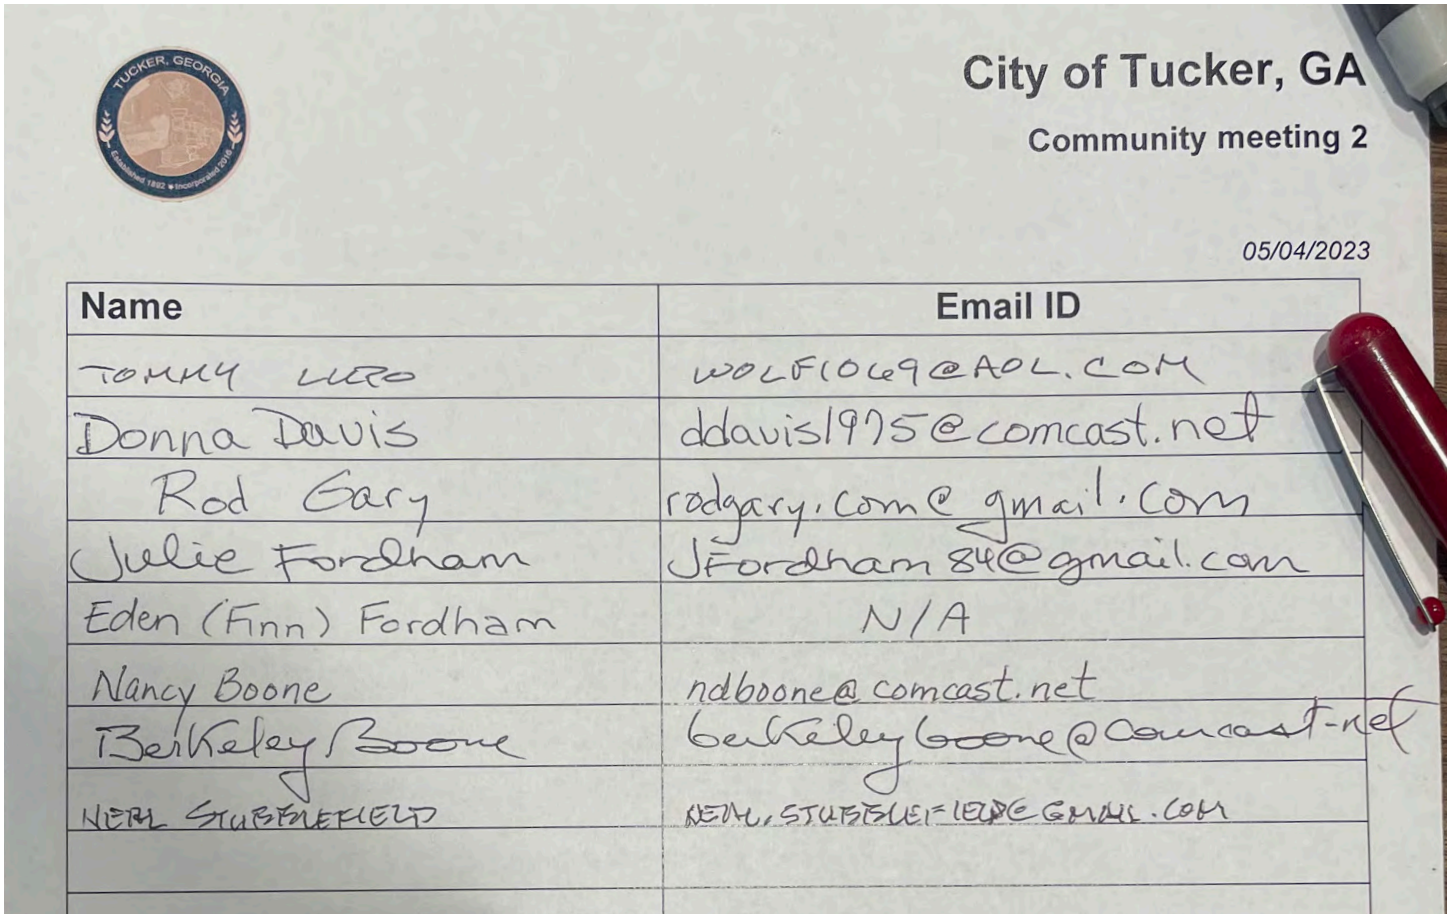 TUCKER, GEORGIA
Established 1892 Incorporated 2016
City of Tucker, GA
Community meeting 2
05/04/2023
Name Email ID
TOMMY WOLF1069@AOL.COM
Donna Davis ddavis1975@comcast.net
Rod Gary rodgary.com@gmail.com
Julie Fordham JFordham84@gmail.com
Eden (Finn) Fordham N/A
Nancy Boone ndboone@comcast.net
Berkeley Boone berkeleyboone@comcast.net
NEAL STUBBLEFIELD NEAL.STUBBLEFIELD@GMAIL.COM